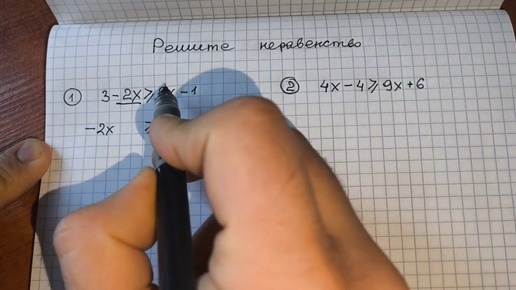 Решите неравенство
① 3-2x≥ x-1
② 4x-4≥9x+6
-2x ≥